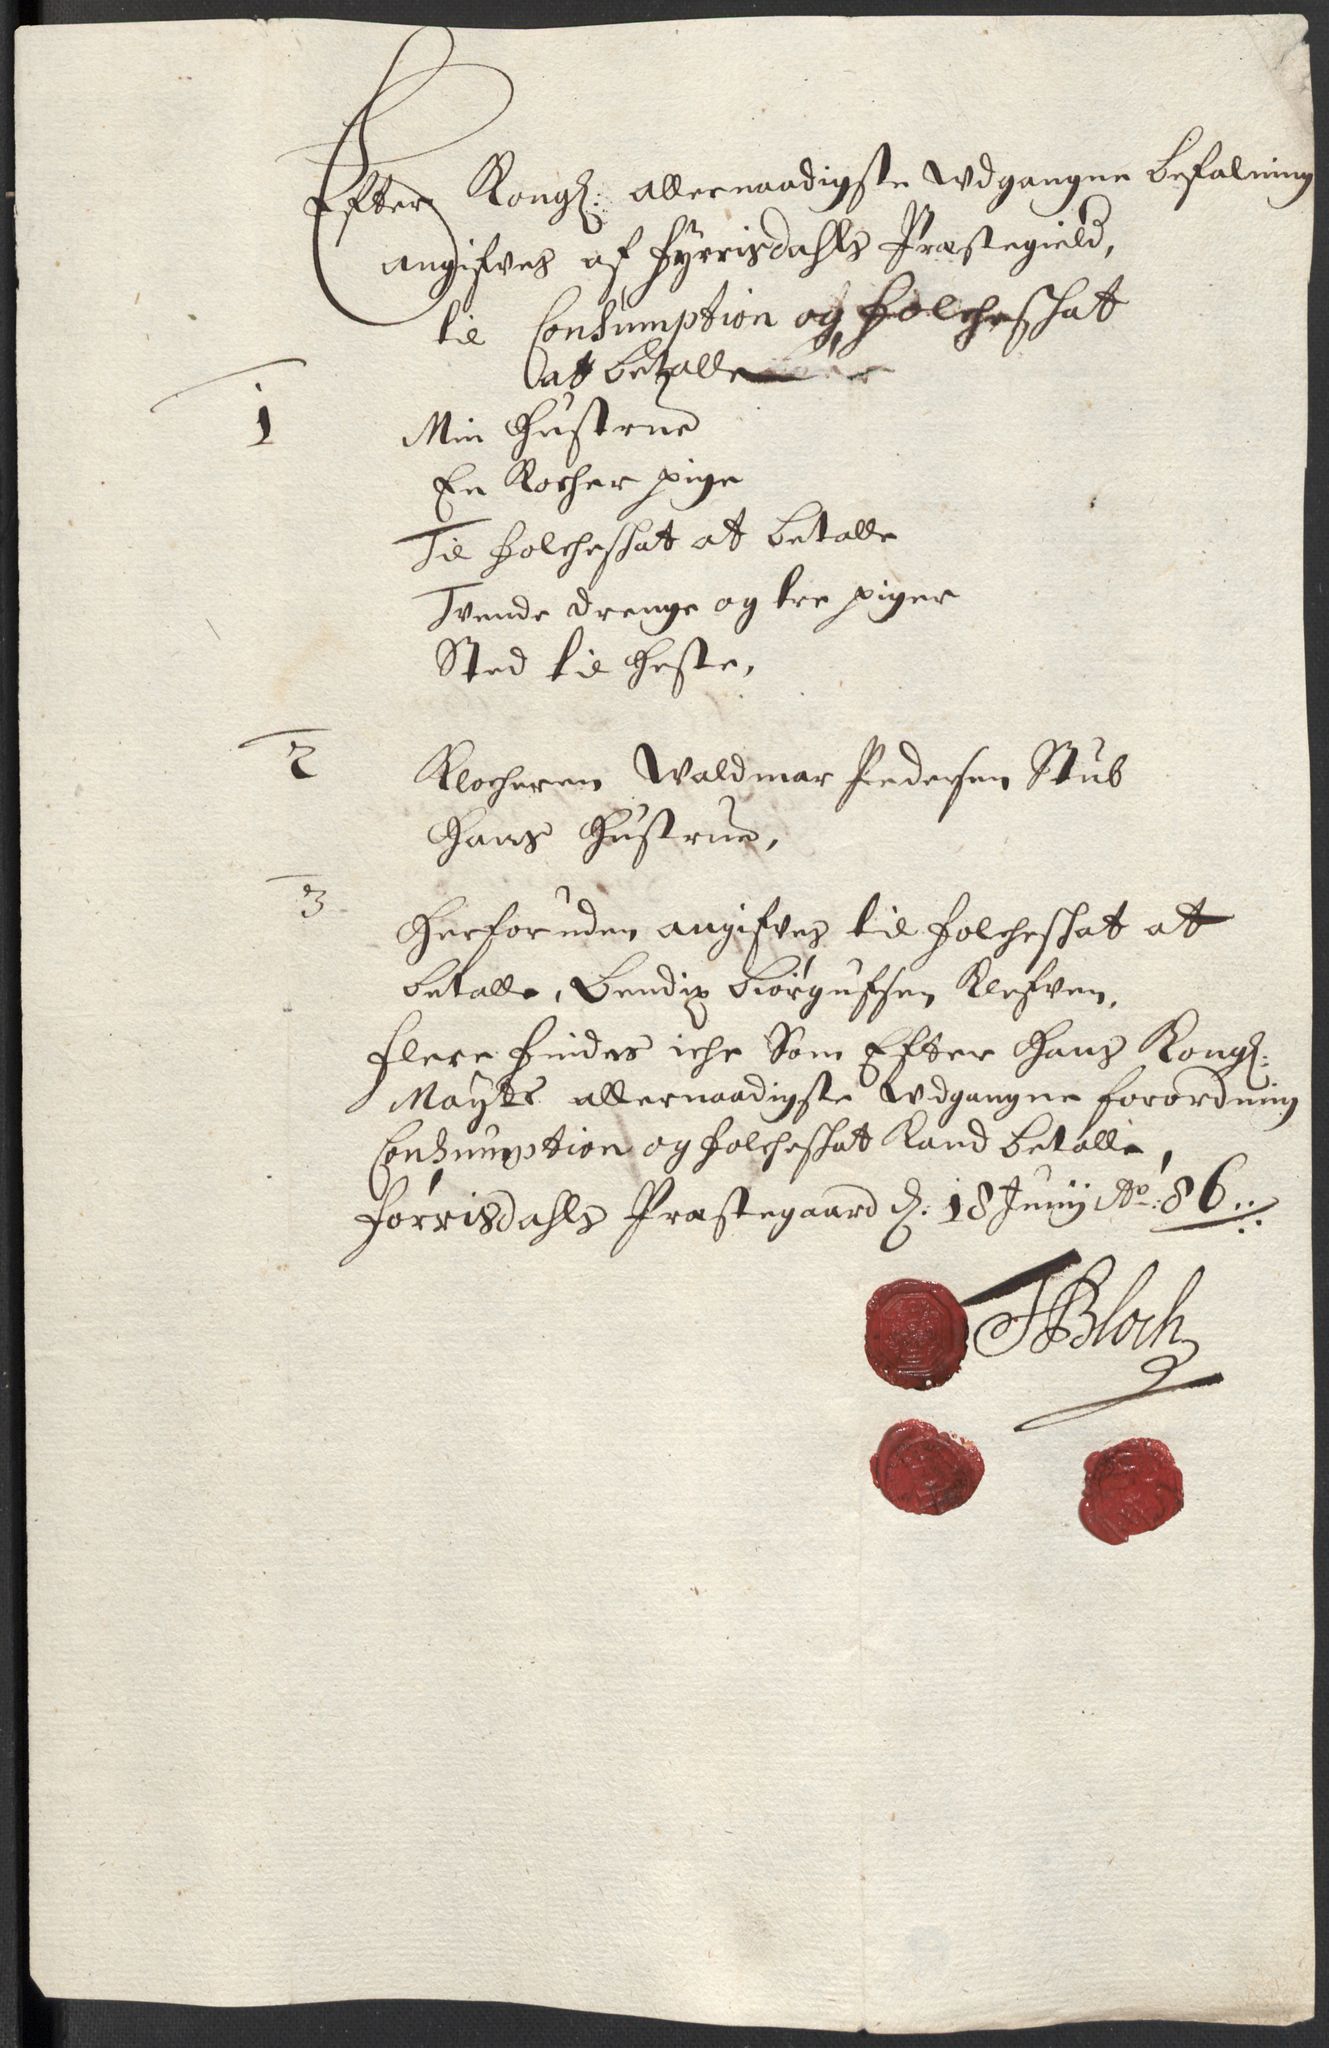 Efter Kongl: allernaadigste Udgangne Befalning
angifves af Fyrrisdahls Præstegield,
til Consumption og folcheskat
at betalle
1 Min Hustrue
En Kocher pige
Til folcheskat at betalle
Tvende drenge og tre piger
Sted til Heste,
2 Klocheren Waldmar Pedersen Stub
Hans Hustrue,
3 Herforuden angifves til folcheskat at
betalle, Bendix Biørgufsen Klefven,
flere findes iche Som Efter Hans Kongl:
Mayts allernaadigste Udgangne forordning
Consumption og folcheskat Kand betalle,
Førrisdahls Præstegaard d: 18 Junij Ao: 86
HBloch